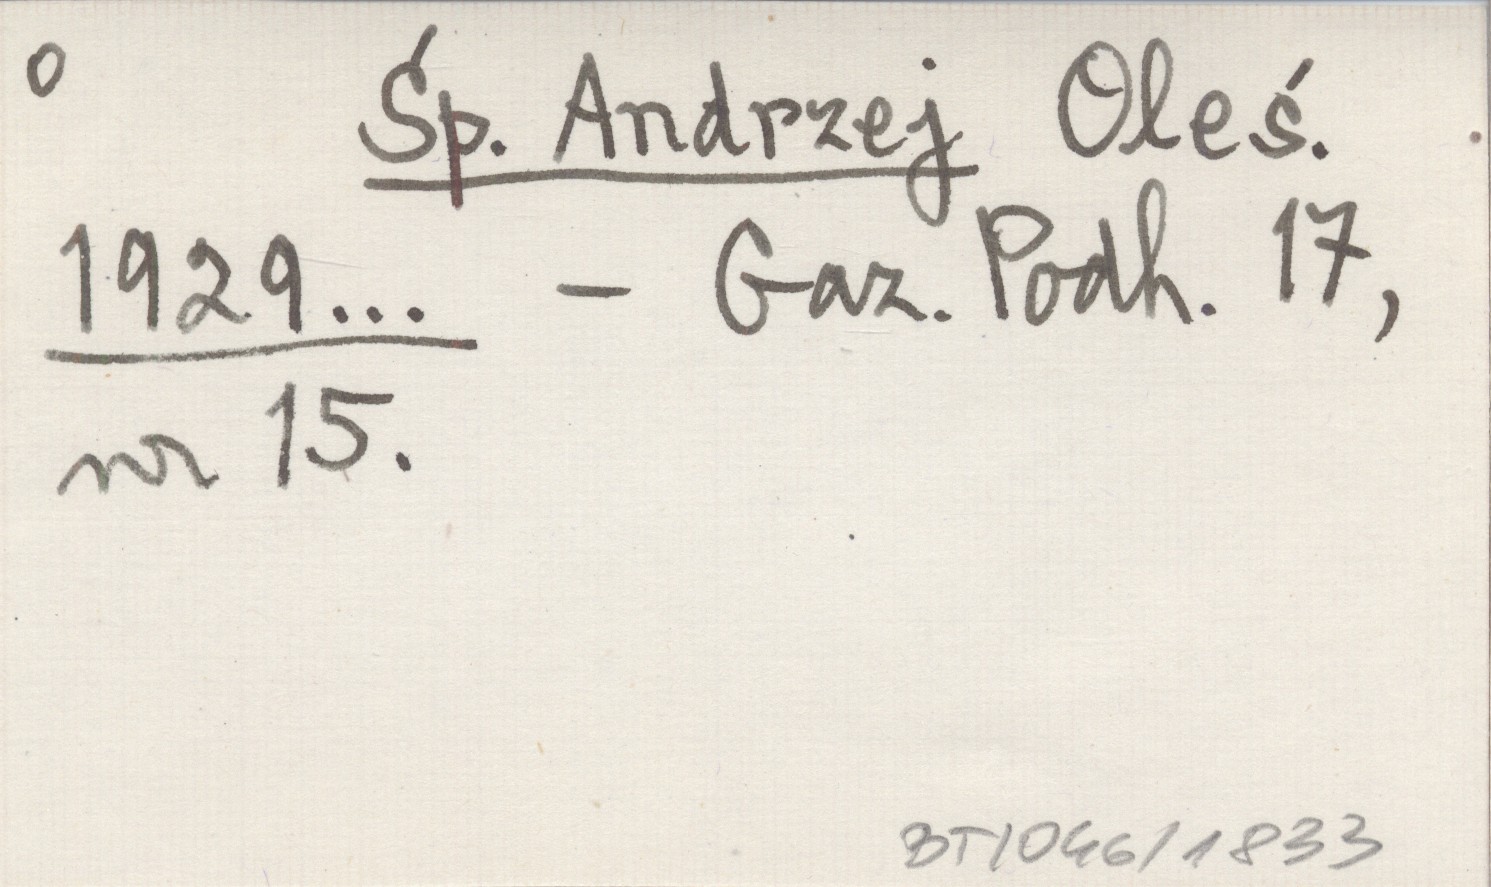 o Śp. Andrzej Oleś.
1929... - Gaz. Podh. 17,
nr 15.
BT/046/1833